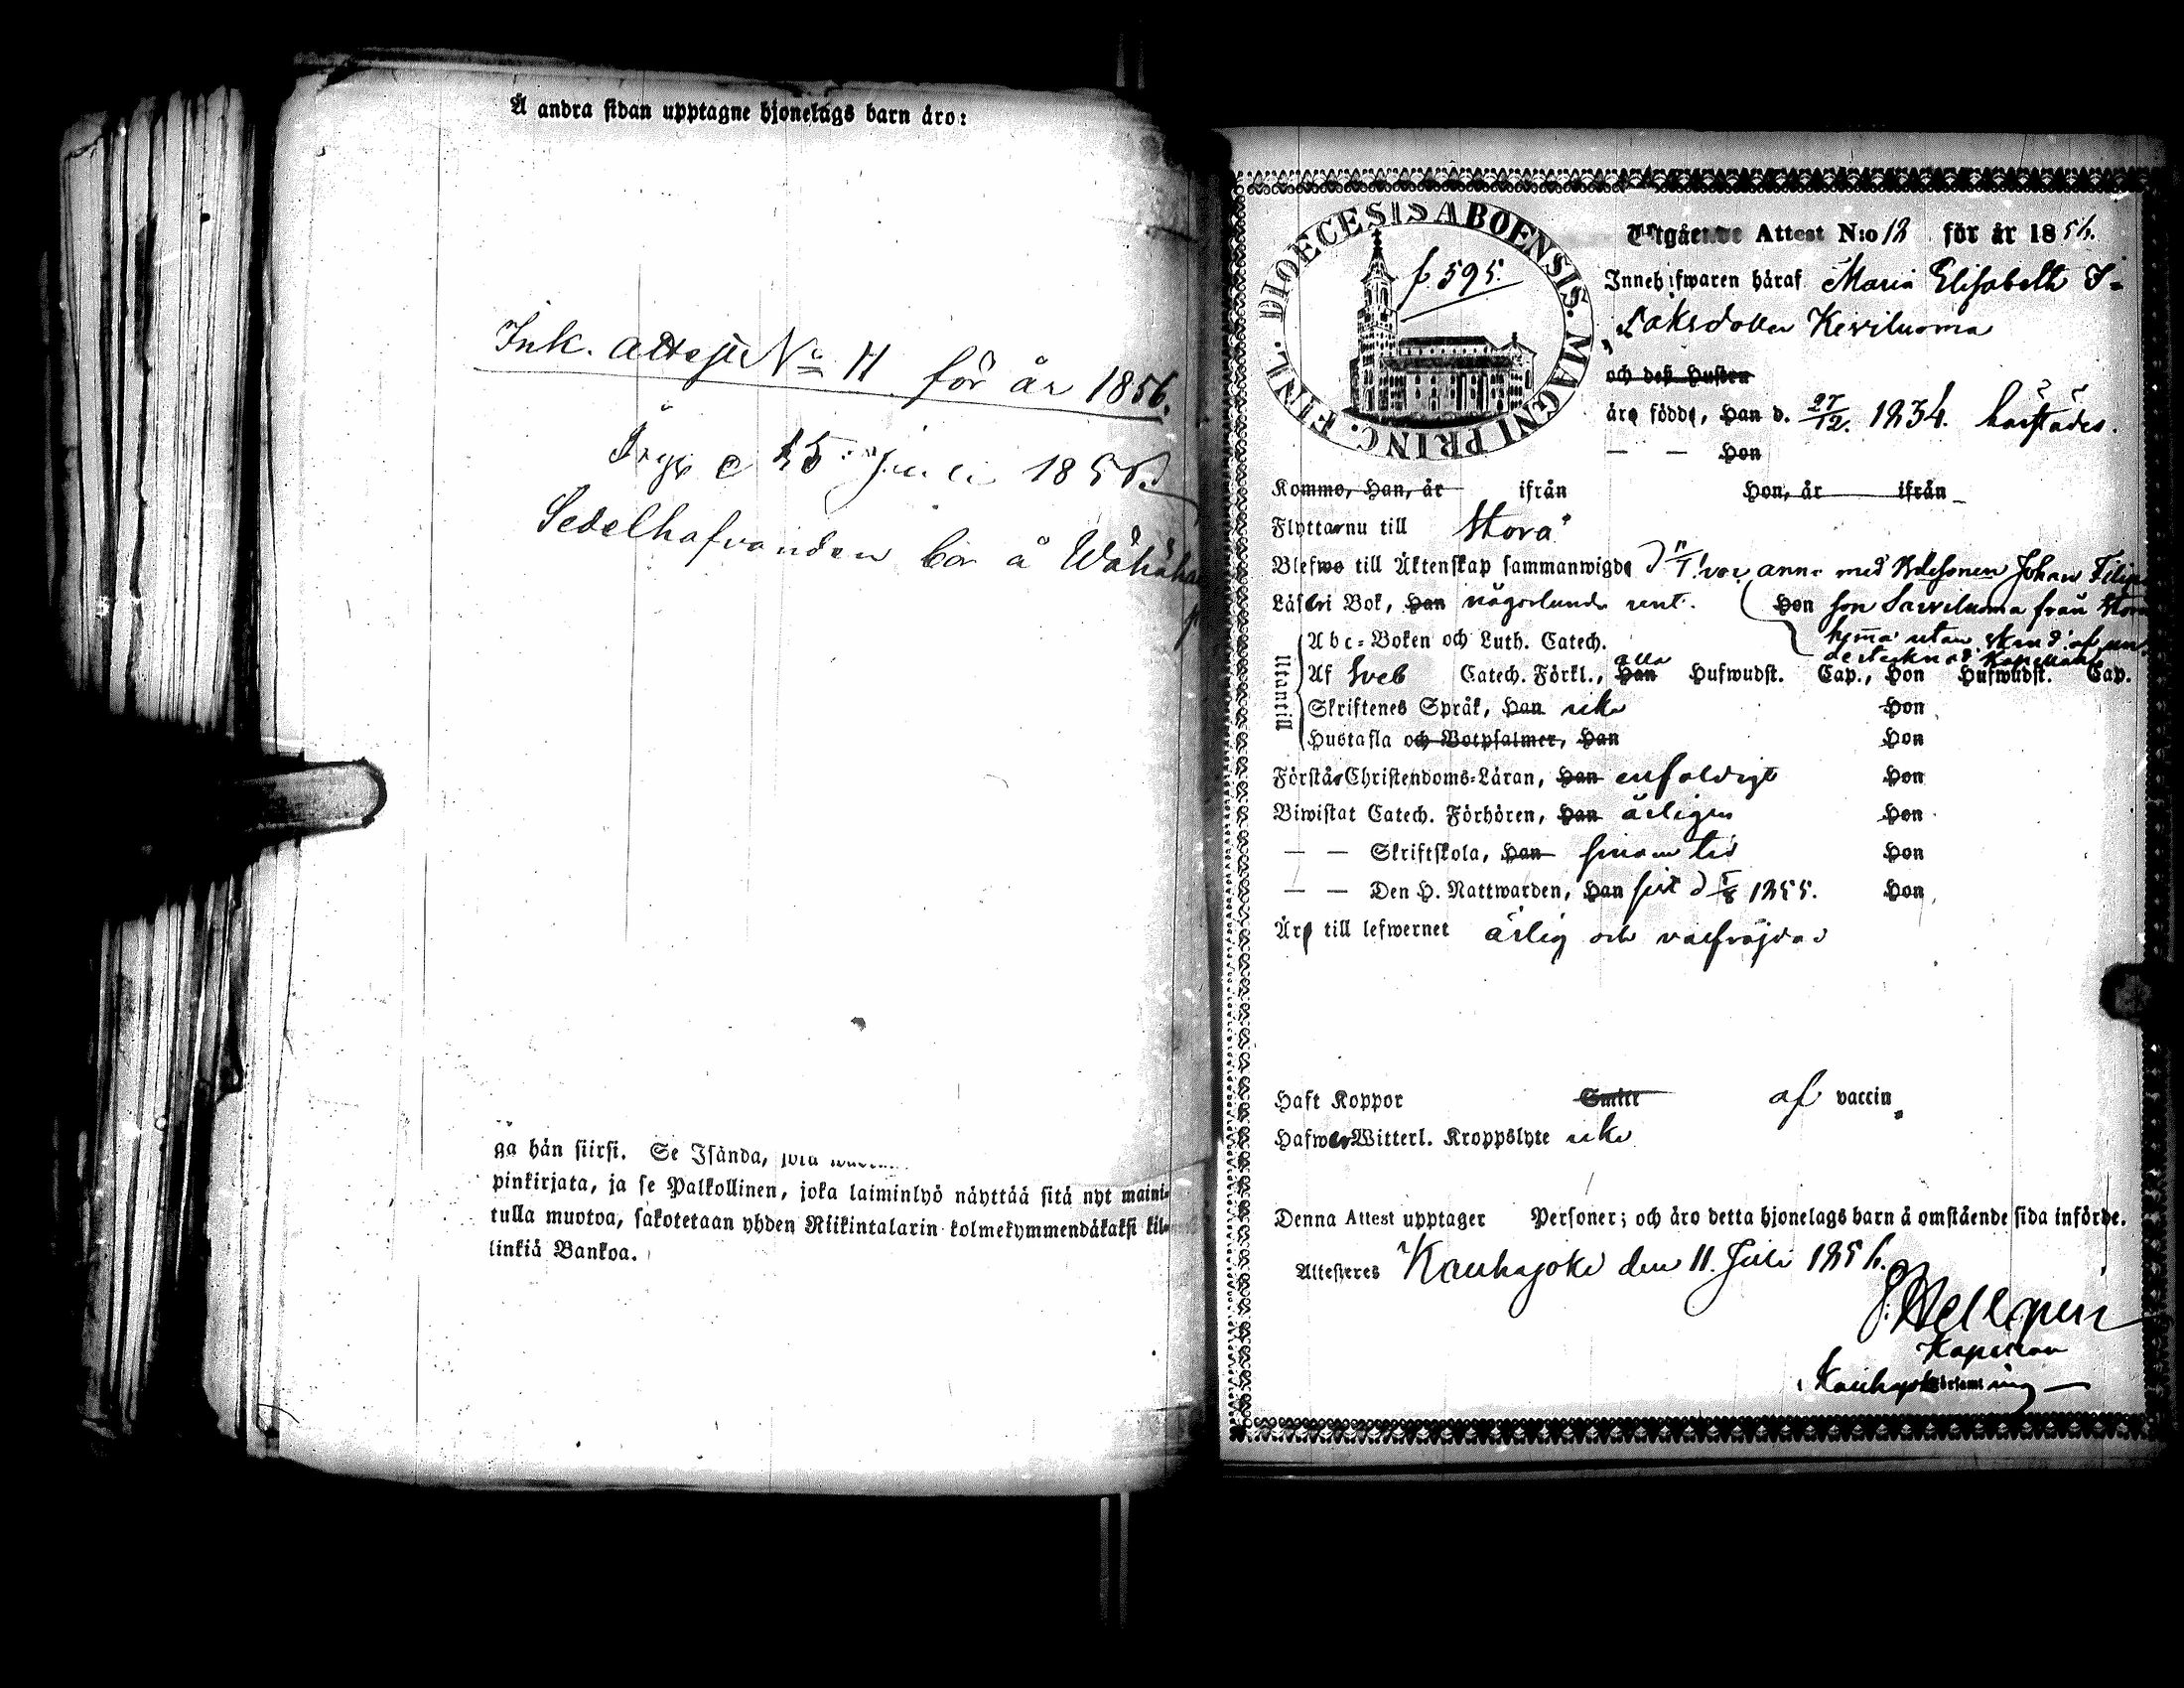 Å andra sidan upptagne hjonelags barn äro:
Ink. attest No 11 för år 1856.
d 15 Juli 1856
Sedelhafvanden bor å
ga hän siirsi. Se Isända,
pinkirjata, ja se Palkollinen, joka laiminlyö näyttää sitä nyt maini-
tulla muotoa, sakotetaan yhden Riikintalarin kolmekymmendäkaksi kil-
linkiä Bankoa.
DIOECESIS ABOENSIS. MAGNI PRINC. FINL.
f. 595.
Utgående Attest N:o 12 för år 1856.
Innehafwaren häraf Maria Elisabeth I-
saksdotter Keviluoma
och dess Hustru
äro födde, Han d. 27/12. 1834. härstädes.
— — Hon
Komme, Han, år ifrån Hon, år ifrån
Flyttar nu till Storå
Blefwo till Äktenskap sammanwigde d med Johan Filip
Läser i Bok, Han någorlunda rent. Hon son från
Utantill
Abc-Boken och Luth. Catech.
Af Sveb Catech. Förkl., Han alla Hufwudst. Cap., Hon Hufwudst. Cap.
Skriftenes Språk, Han icke Hon
Hustafla och Botpsalmer, Han Hon
Förstår Christendoms-Läran, Han enfaldigt Hon
Biwistat Catech. Förhören, Han årligen Hon
— — Skriftskola, Han sinom tid Hon
— — Den H. Nattwarden, Han sist d 1855. Hon
Äro till lefwernet ärlig och välfräjdad
Haft Koppor Smitt af vaccin
Hafwer Witterl. Kroppslyte icke
Denna Attest upptager Personer; och äro detta hjonelags barn å omstående sida införde.
Attesteres Kauhajoki den 11. Juli 1856.
Kapellan
i Kauhajoki församling